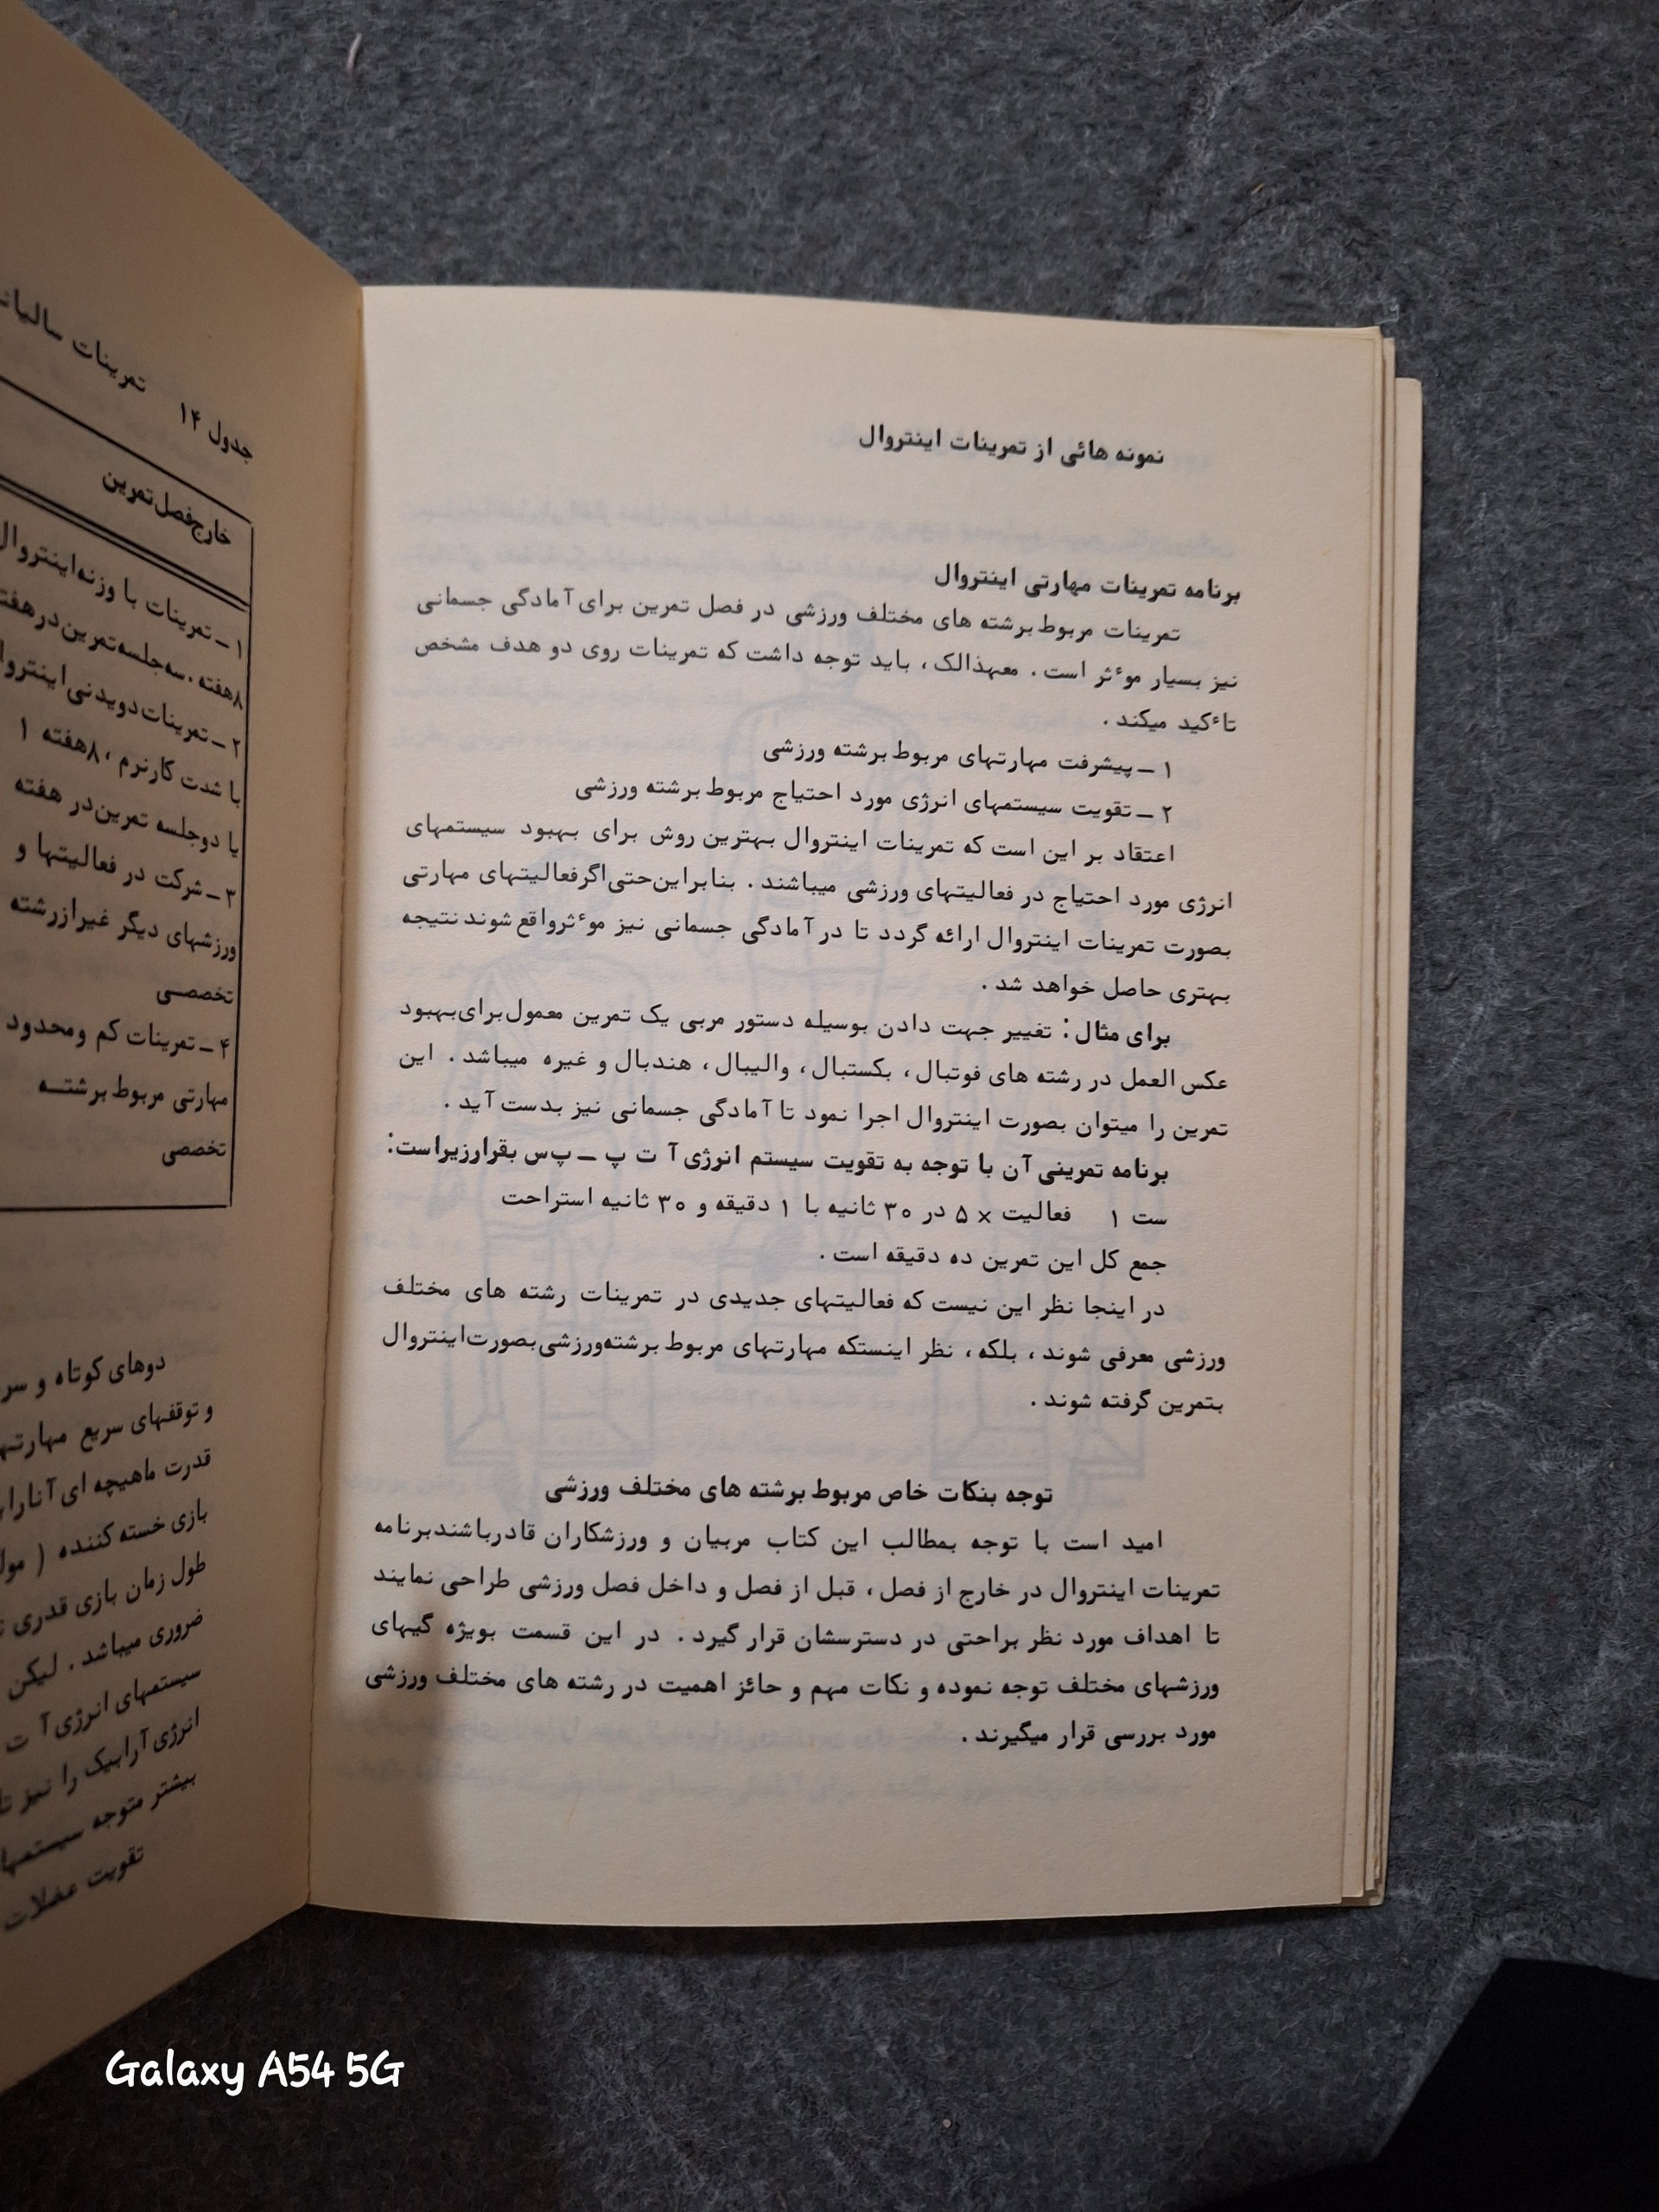 نمونه هائی از تمرینات اینتروال
برنامه تمرینات مهارتی اینتروال
تمرینات مربوط برشته های مختلف ورزشی در فصل تمرین برای آمادگی جسمانی
نیز بسیار موٴثر است . معهذالک ، باید توجه داشت که تمرینات روی دو هدف مشخص
تاٴکید میکند .
۱ ــ پیشرفت مهارتهای مربوط برشته ورزشی
۲ ــ تقویت سیستمهای انرژی مورد احتیاج مربوط برشته ورزشی
اعتقاد بر این است که تمرینات اینتروال بهترین روش برای بهبود سیستمهای
انرژی مورد احتیاج در فعالیتهای ورزشی میباشند . بنابراین حتی اگر فعالیتهای مهارتی
بصورت تمرینات اینتروال ارائه گردد تا در آمادگی جسمانی نیز موٴثر واقع شوند نتیجه
بهتری حاصل خواهد شد .
برای مثال : تغییر جهت دادن بوسیله دستور مربی یک تمرین معمول برای بهبود
عکس العمل در رشته های فوتبال ، بکستبال ، والیبال ، هندبال و غیره میباشد . این
تمرین را میتوان بصورت اینتروال اجرا نمود تا آمادگی جسمانی نیز بدست آید .
برنامه تمرینی آن با توجه به تقویت سیستم انرژی آ ت پ ــ پ‌س بقرار زیر است :
ست ۱ فعالیت × ۵ در ۳۰ ثانیه با ۱ دقیقه و ۳۰ ثانیه استراحت
جمع کل این تمرین ده دقیقه است .
در اینجا نظر این نیست که فعالیتهای جدیدی در تمرینات رشته های مختلف
ورزشی معرفی شوند ، بلکه ، نظر اینستکه مهارتهای مربوط برشته ورزشی بصورت اینتروال
بتمرین گرفته شوند .
توجه بنکات خاص مربوط برشته های مختلف ورزشی
امید است با توجه بمطالب این کتاب مربیان و ورزشکاران قادر باشند برنامه
تمرینات اینتروال در خارج از فصل ، قبل از فصل و داخل فصل ورزشی طراحی نمایند
تا اهداف مورد نظر براحتی در دسترسشان قرار گیرد . در این قسمت بویژه گیهای
ورزشهای مختلف توجه نموده و نکات مهم و حائز اهمیت در رشته های مختلف ورزشی
مورد بررسی قرار میگیرند .
جدول ۱۴ تمرینات
خارج فصل تمرین
۱ ــ تمرینات با وزنه اینتروال
۸ هفته . سه جلسه تمرین در هفته
۲ ــ تمرینات دویدنی اینتروال
با شدت کار نرم ، ۸ هفته ۱
یا دو جلسه تمرین در هفته
۳ ــ شرکت در فعالیتها و
ورزشهای دیگر غیر از رشته
تخصصی
۴ ــ تمرینات کم و محدود
مهارتی مربوط برشته
تخصصی
دوهای کوتاه و
و توقفهای سریع
قدرت ماهیچه ای
بازی خسته کننده (
طول زمان بازی قدری
ضروری میباشد . لیکن
سیستمهای انرژی آ ت
انرژی آرابیک را نیز
بیشتر متوجه
تقویت عضلات
Galaxy A54 5G